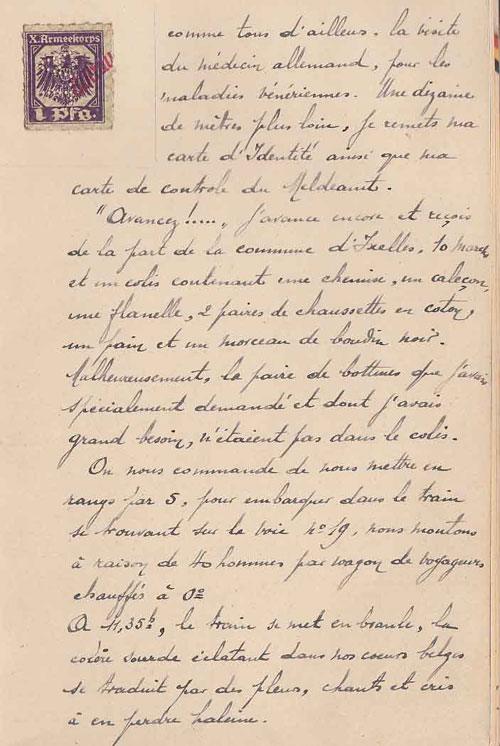 X. Armeekorps
1 Pfg.
comme tous d'ailleurs. la visite
du médecin allemand, pour les
maladies vénériennes. Une dizaine
de mètres plus loin, je remets ma
carte d'Identité ainsi que ma
carte de controle du Meldeamt.
"Avancez!....„ J'avance encore et reçois
de la part de la commune d'Ixelles, 10 Marks
et un colis contenant une chemise, un caleçon,
une flanelle, 2 paires de chaussettes en coton,
un pain et un morceau de boudin noir.
Malheureusement, la paire de bottines que j'avais
spécialement demandé et dont j'avais
grand besoin, n'étaient pas dans le colis.
On nous commande de nous mettre en
rangs par 5, pour embarquer dans le train
se trouvant sur la voie nº 19, nous montons
à raison de 40 hommes par wagon de voyageurs
chauffés à 0º
A 11,35h, le train se met en branle, la
colère sourde éclatant dans nos coeurs belges
se traduit par des pleurs, chants et cris
à en perdre haleine.